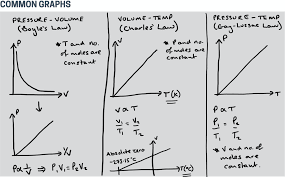 COMMON GRAPHS
PRESSURE - VOLUME
(Boyle's Law)
P
* T and no.
of moles are
constant
V
P
1/V
P∝1/V ⇒ P₁V₁ = P₂V₂
VOLUME - TEMP
(Charles' Law)
V
* P and no.
of moles are
constant
T(K)
V∝T
V₁/T₁ = V₂/T₂
Absolute zero
-273.15°C
V
T(°C)
PRESSURE - TEMP
(Gay-Lussac Law)
P
T(K)
P∝T
P₁/T₁ = P₂/T₂
* V and no. of
moles are
constant.